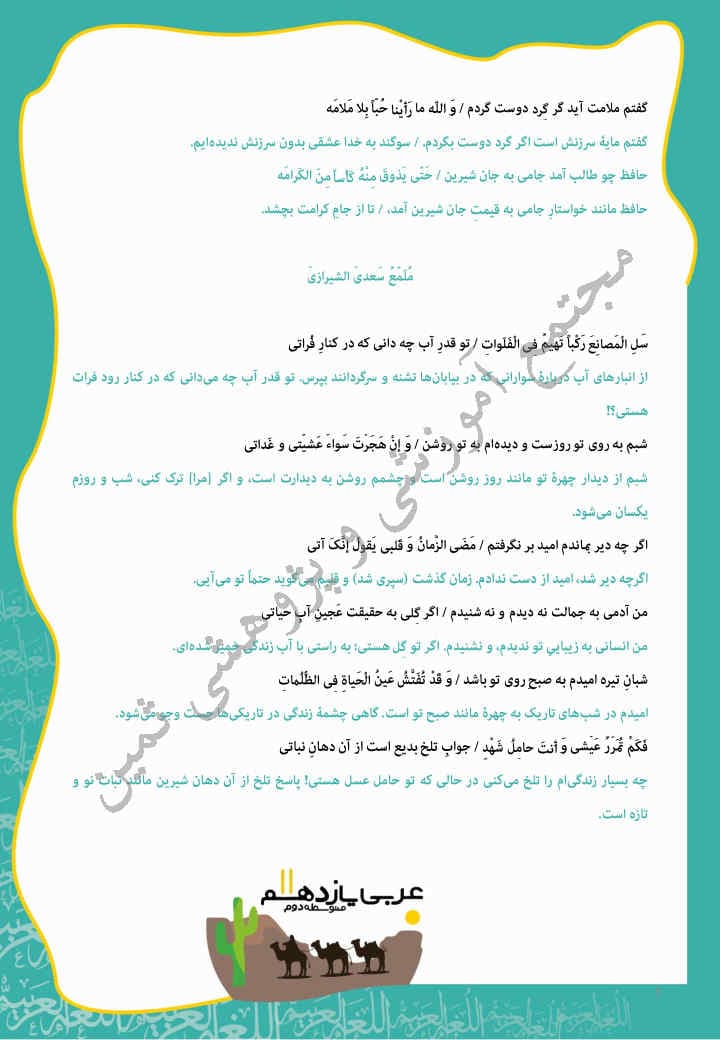 گفتم ملامت آید گر گِرد دوست گردم / وَ اللّٰه ما رَأَیْنا حُبّاً بِلا مَلامَه
گفتم مایهٔ سرزنش است اگر گرد دوست بگردم. / سوگند به خدا عشقی بدون سرزنش ندیده‌ایم.
حافظ چو طالب آمد جامی به جان شیرین / حَتّی یَذوقَ مِنْهُ کَأْساً مِنَ الکَرامَه
حافظ مانند خواستارِ جامی به قیمتِ جان شیرین آمد، / تا از جامِ کرامت بچشد.
مُلَمَّعُ سَعدیَ الشیرازیَ
سَلِ الْمَصانِعَ رَکْباً تَهیمُ فِی الْفَلَواتِ / تو قدرِ آب چه دانی که در کنارِ فُراتی
از انبارهای آب دربارهٔ سوارانی که در بیابان‌ها تشنه و سرگردانند بپرس. تو قدر آب چه می‌دانی که در کنار رود فرات
هستی؟!
شبم به روی تو روزست و دیده‌ام به تو روشن / وَ إِنْ هَجَرْتَ سَواءٌ عَشیَتی و غَداتی
شبم از دیدار چهرهٔ تو مانند روز روشن است و چشمم روشن به دیدارت است، و اگر [مرا] ترک کنی، شب و روزم
یکسان می‌شود.
اگر چه دیر بماندم امید بر نگرفتم / مَضَی الزَّمانُ وَ قَلبی یَقولُ إِنَّکَ آتی
اگرچه دیر شد، امید از دست ندادم. زمان گذشت (سپری شد) و قلبم می‌گوید حتماً تو می‌آیی.
من آدمی به جمالت نه دیدم و نه شنیدم / اگر گِلی به حقیقت عَجینِ آبِ حیاتی
من انسانی به زیباییِ تو ندیدم، و نشنیدم. اگر تو گِل هستی؛ به راستی با آبِ زندگی خمیر شده‌ای.
شبانِ تیره امیدم به صبحِ روی تو باشد / وَ قَدْ تُفَتَّشُ عَینُ الْحَیاةِ فِی الظُّلُماتِ
امیدم در شب‌های تاریک به چهرهٔ مانند صبح تو است. گاهی چشمهٔ زندگی در تاریکی‌ها جست وجو می‌شود.
فَکَمْ تُمَرِّرُ عَیْشی وَ أَنتَ حامِلُ شَهْدٍ / جوابِ تلخ بدیع است از آن دهانِ نباتی
چه بسیار زندگی‌ام را تلخ می‌کنی در حالی که تو حامل عسل هستی! پاسخ تلخ از آن دهان شیرین مانند نبات نو و
تازه است.
مجتمع آموزشی و پژوهشی ثمین
عربی یازدهم
متوسطه دوم